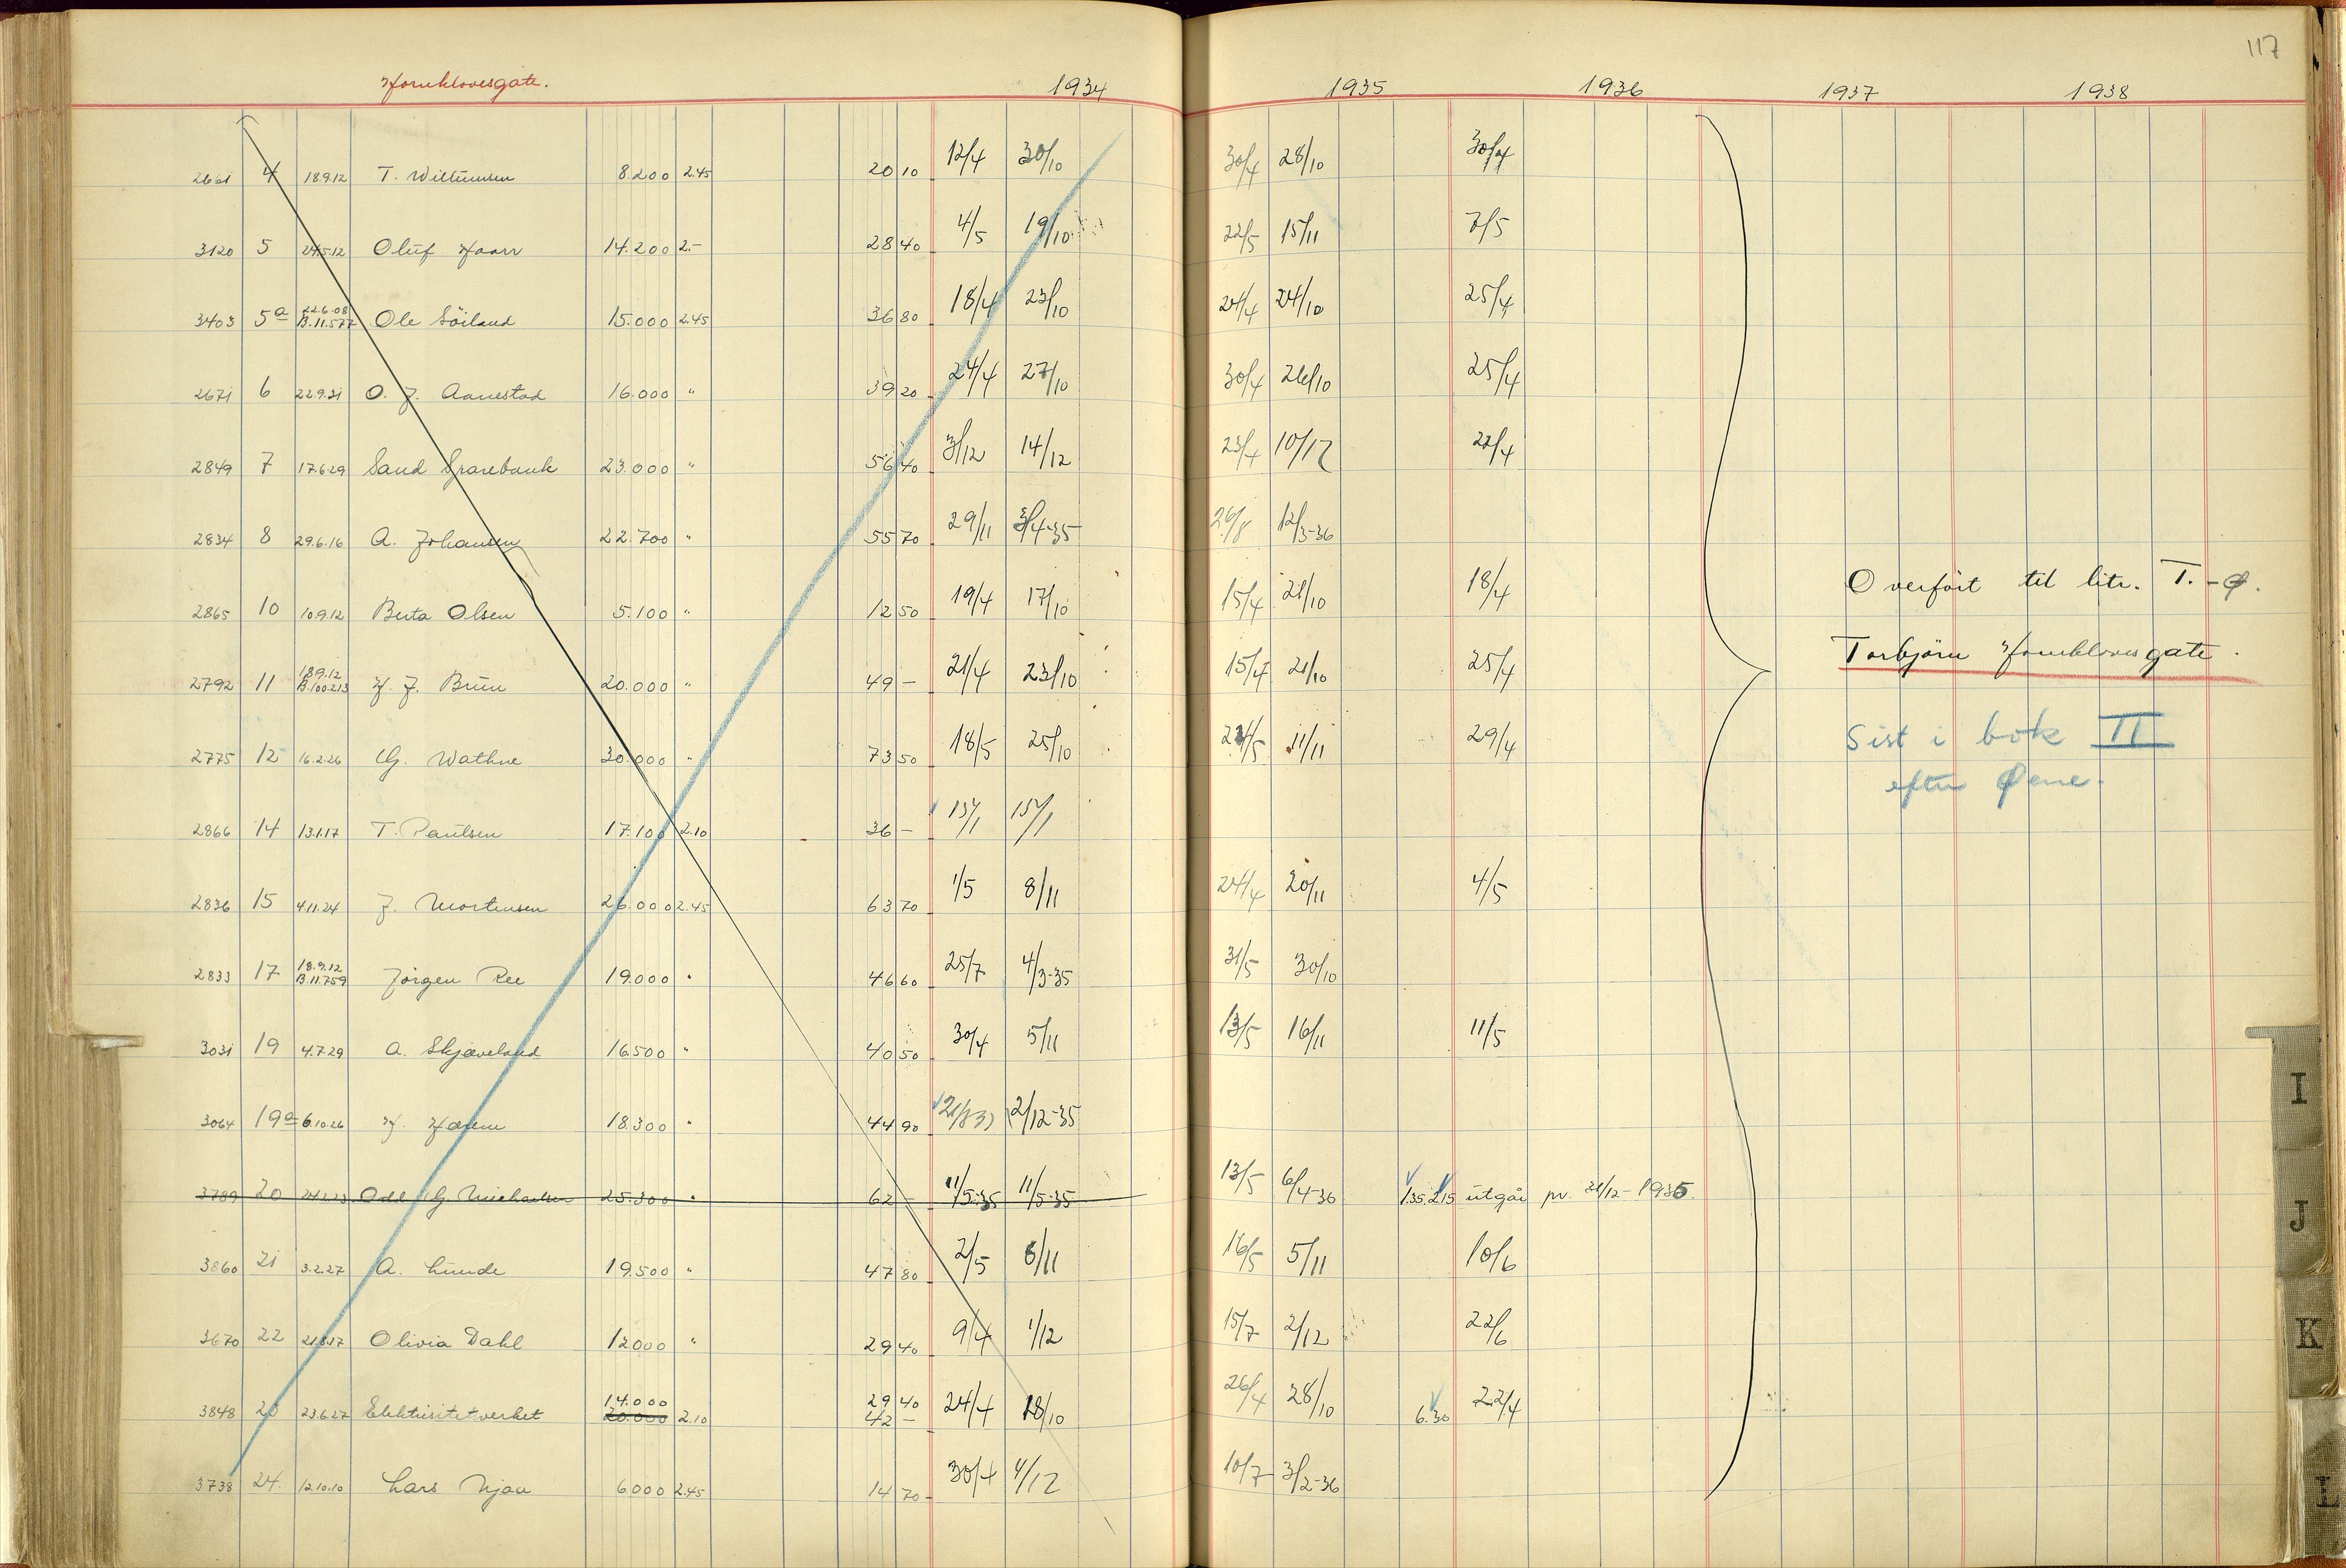 117
Hornklovesgate. 1934 1935 1936 1937 1938
2661 4 18.9.12 T. Willumsen 8.200 2.45 20 10 12/4 30/10 30/4 28/10 30/4
3120 5 24.5.12 Oluf Haarr 14.200 2.- 28 40 4/5 19/10 22/5 15/11 7/5
3403 5a 22.6.08 B.11.577 Ole Söiland 15.000 2.45 36 80 18/4 23/10 24/4 24/10 25/4
2671 6 22.9.31 O. J. Aanestad 16.000 " 39 20 24/4 27/10 30/4 26/10 25/4
2849 7 17.6.29 Sand Sparebank 23.000 " 56 40 3/12 14/12 23/4 10/12 22/4
2834 8 29.6.16 A. Johansen 22.700 " 55 70 29/11 3/4-35 26/8 12/3-36
2865 10 10.9.12 Berta Olsen 5.100 " 12 50 19/4 17/10 15/4 21/10 18/4
Overfört til litr. T.-Ø.
2792 11 18.9.12 B.100.213 H. J. Brun 20.000 " 49 - 21/4 23/10 15/4 21/10 25/4
Torbjörn Hornklovesgate.
2775 12 16.2.26 G. Wathne 30.000 " 73 50 18/5 25/10 24/5 11/11 29/4
Sist i bok II
efter Øene.
2866 14 13.1.17 T. Paulsen 17.100 2.10 36 - 15/1 15/1
2836 15 4.11.24 J. Mortensen 26.000 2.45 63 70 1/5 8/11 24/4 20/11 4/5
2833 17 18.9.12 B.11.759 Jörgen Ree 19.000 " 46 60 25/7 4/3-35 31/5 30/10
3031 19 4.7.29 A. Skjæveland 16.500 " 40 50 30/4 5/11 13/5 16/11 11/5
3064 19a 6.10.26 18.300 " 44 90 2/12-35
3789 20 Odd G. Michaelsen 25.300 " 62 - 11/5-35 11/5-35 13/5 6/4-36 1.35. 2.15 utgår pr. 31/12-1935.
3860 21 3.2.27 A. Lunde 19.500 " 47 80 2/5 6/11 16/5 5/11 10/6
3670 22 Olivia Dahl 12000 " 29 40 9/4 1/12 15/7 2/12 22/6
3848 23 23.6.27 Elektrisitetverket 14.000 20.000 2.10 29 40 42 - 24/4 18/10 26/4 28/10 6.30 22/4
3738 24. 12.10.10 Lars Njaa 6.000 2.45 14 70 30/4 4/12 10/7 3/2-36
I
J
K
L